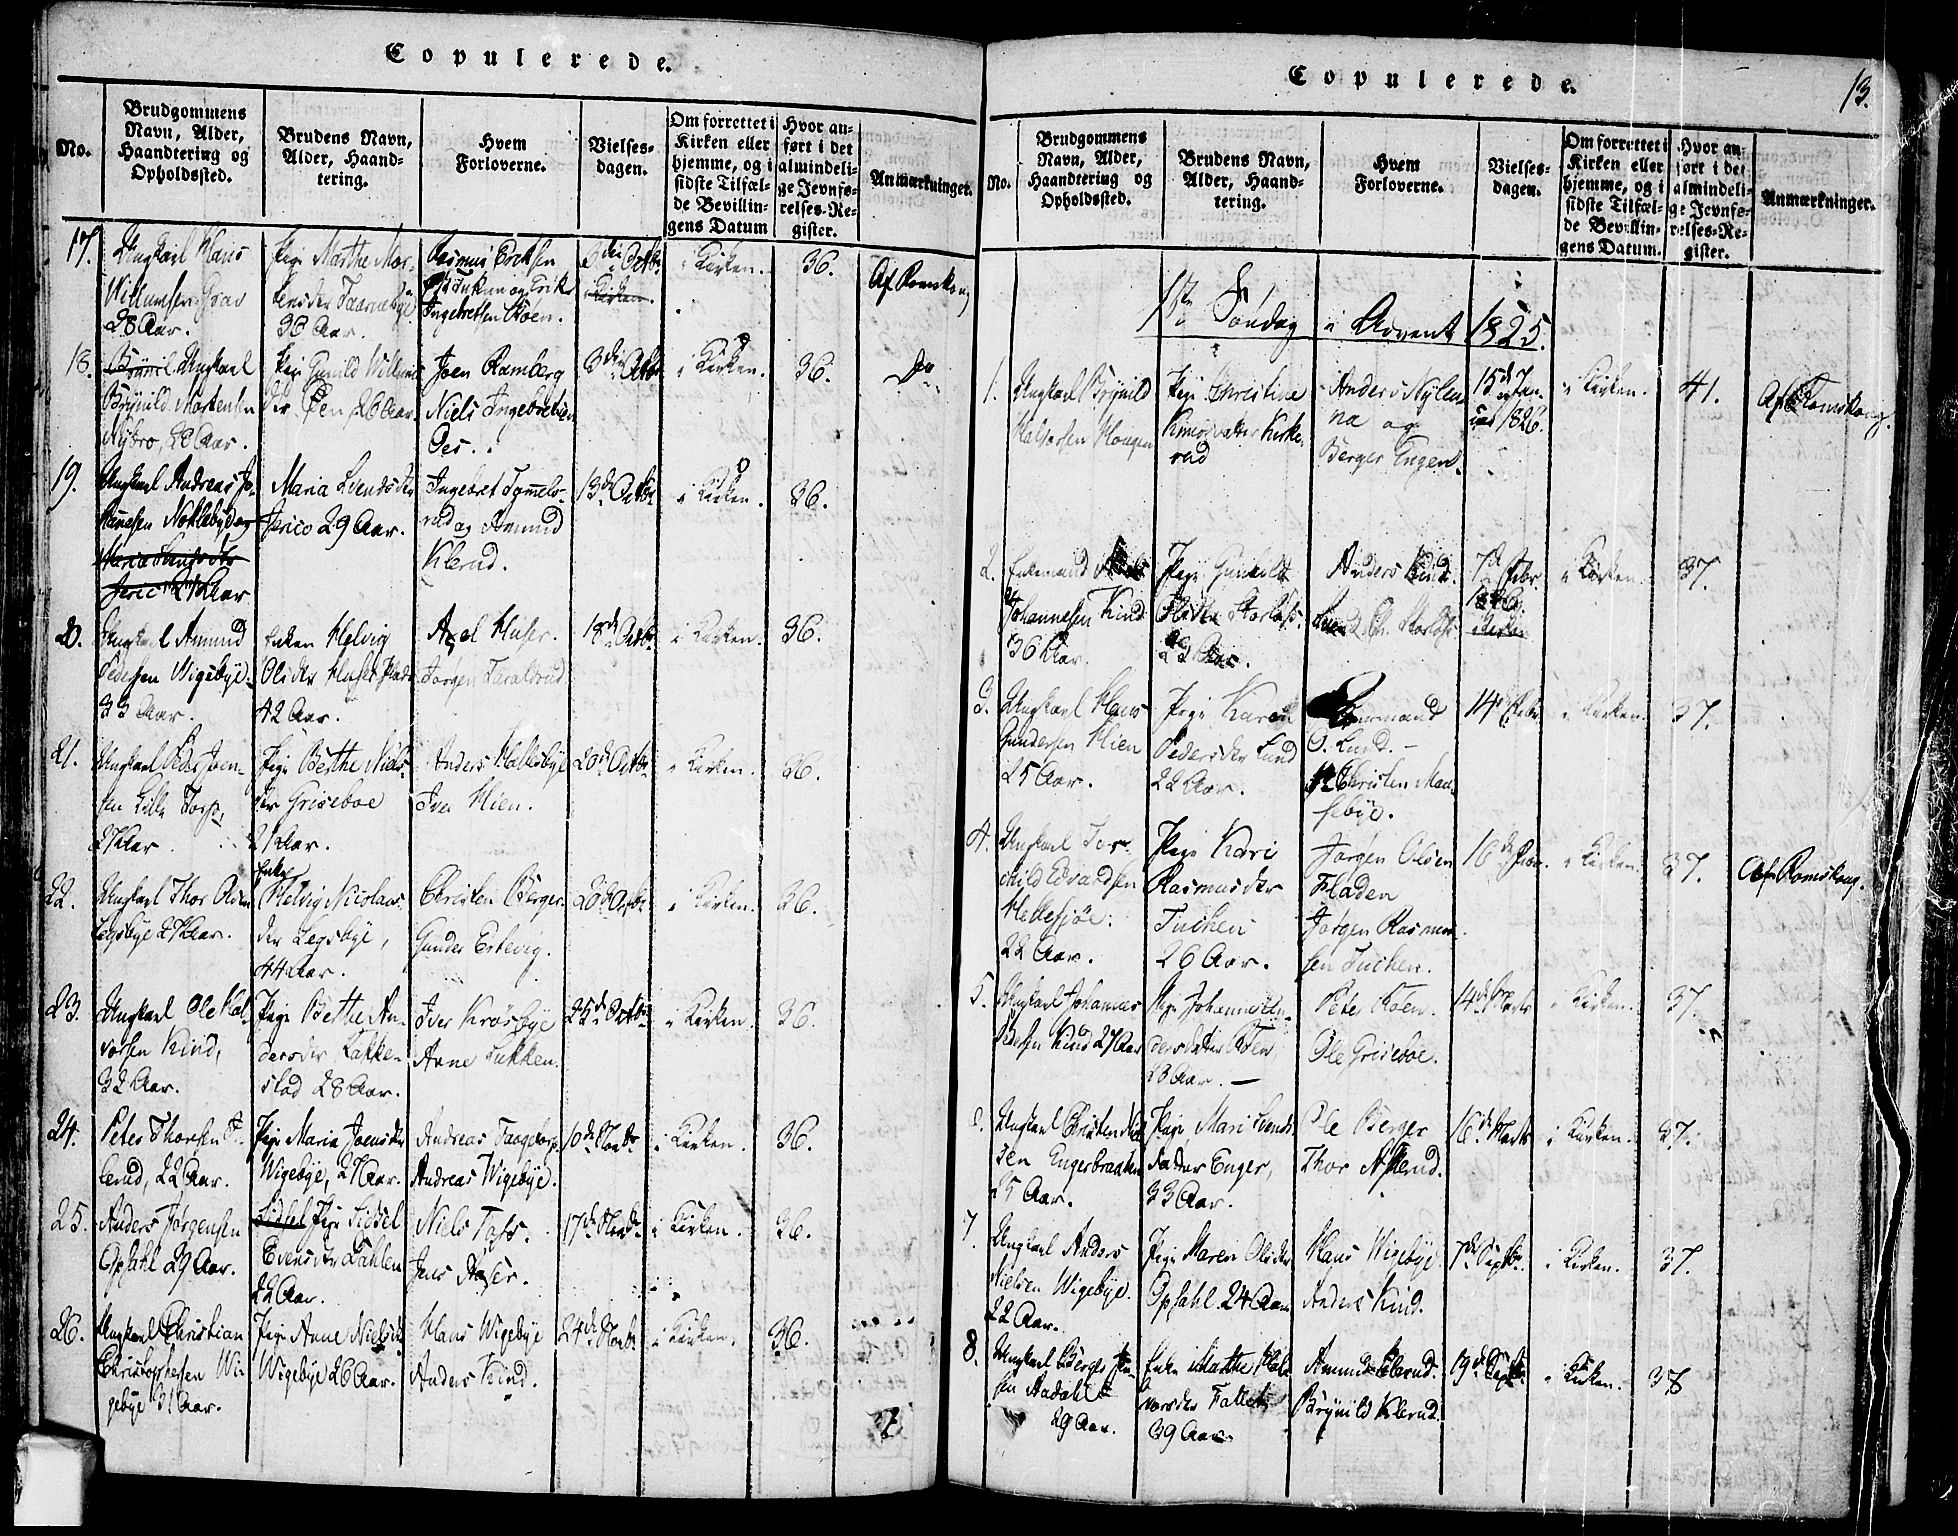 Copulerede.
No.
Brudgommens
Navn, Alder,
Haandtering og
Opholdssted.
Brudens Navn,
Alder, Haand-
tering.
Hvem
Forloverne.
Vielses-
dagen.
Om forrettet i
Kirken eller
hjemme, og i
sidste Tilfæl-
de Bevillin-
gens Datum
Hvor an-
ført i det
almindeli-
ge Jevnfø-
relses-Re-
gister.
Anmærkninger.
17.
Ungkarl Hans
Willumsen Grav
28 Aar.
Pige Marthe Mor-
tensdtr Taarnebye
36 Aar.
Rasmus Ericksen
Tukun og Erik
Ingebretsen Støen.
3die Octbr
i Kirken.
36.
Af Romskoug
18.
Ungkarl
Brynild Mortensen
Nybro, 28 Aar.
Pige Gunild Willums
dtr Øen 26 Aar.
Joen Ramberg
Niels Ingebretsen
Oes.
3die Octbr
i Kirken.
36.
Do
19.
Ungkarl Andreas Jo-
hannesen Nøklebye
Maria Svendsdtr
Jerico 29 Aar.
Ingebret
rud og Amund
Klerud.
13de Octbr
i Kirken.
36.
20.
Ungkarl Amund
Pedersen Wigebye.
33 Aar.
Enken Helvig
Olsdtr Huser
42 Aar.
Axel Huser.
Jørgen Taraldrud
18de Octbr
i Kirken.
36.
21.
Ungkarl Peder Joen-
sen Lille Torp,
27 Aar.
Pige Berthe Niels-
dtr Griseboe
21 Aar.
Anders Hallesbye
Iver Hien.
20de Octbr
i Kirken.
36.
22.
Ungkarl Thor Olsen
Legsbye 27 Aar.
Enke
Helvig Nicolays-
dtr Legsbye,
44 Aar.
Christen Berger
Gunder Ertevig.
i Kirken.
36.
23.
Ungkarl Ole Hal-
vorsen Kind,
32 Aar.
Pige Berthe An-
dersdtr Kakken-
stad 28 Aar.
Iver Krosbye
Arne Lukken.
25de Octbr
i Kirken.
36.
24.
Peter Thorsen
lerud, 22 Aar.
Pige Maria Joensdtr
Wigebye, 27 Aar.
Andreas Taagetorp
Andreas Wigebye.
10de Novbr
i Kirken.
36.
25.
Anders Jørgensen
Opsahl 29 Aar.
Sidsel Pige Sidsel
Evensdtr Dahlen
22 Aar.
Niels Toss.
Jens Aaser.
17de Novbr
i Kirken.
36.
26.
Ungkarl Christian
Christophersen Wi-
gebye 31 Aar.
Pige Anne Nielsdtr
Wigebye 26 Aar.
Hans Wigebye
Anders Kind.
24de Novbr
i Kirken.
36.
Copulerede.
13.
No.
Brudgommens
Navn, Alder,
Haandtering og
Opholdssted.
Brudens Navn,
Alder, Haand-
tering.
Hvem
Forloverne.
Vielses-
dagen.
Om forrettet i
Kirken eller
hjemme, og i
sidste Tilfæl-
de Bevillin-
gens Datum.
Hvor an-
ført i det
almindeli-
ge Jevnfø-
relses-Re-
gister.
Anmærkninger.
1ste Søndag i Advent 1825.
1.
Ungkarl Brynild
Halvorsen Haugen
Pige Christine
Kirke-
rud
Anders Nylen-
na og
Berger Engen.
15de Jan-
uar 1826.
i Kirken.
41.
Af Romskoug.
2.
Enkemand
Johannesen Kind
36 Aar.
Pige Gunild
Olsdtr
23 Aar.
Anders Kind.
7de Febr
i Kirken.
37.
3.
Ungkarl Hans
Gundersen Hien
25 Aar.
Pige Karen
Pedersdtr Lund
22 Aar.
O. Lund.
Christen Man-
sebye.
14de Febr
i Kirken.
37.
4.
Ungkarl Tor-
child Edvardsen
Hellesjøe.
22 Aar.
Pige Kari
Rasmusdtr
Tuchen
26 Aar.
Jørgen Olsen
Fladen
Jørgen Rasmus-
sen Tuchen.
16de Febr.
i Kirken.
37.
Af Romskoug.
5.
Ungkarl Johannes
Pedersen Kind 27 Aar
Pige Johanne An-
dersdatter Røen,
28 Aar.
Peter Koen.
Ole Griseboe.
14de Marts
i Kirken.
37.
Ungkarl Christen Niel
sen Engerbraathen
25 Aar.
Pige Mari Svends-
datter Enger,
33 Aar.
Ole Berger
Thor Aslerud.
16de Marts
i Kirken.
37.
7.
Ungkarl Anders
Nielsen Wigebye.
22 Aar.
Pige Maren Olsdtr
Opsahl 24 Aar
Hans Wigebye
Anders Kind.
7de Septbr.
i Kirken.
37.
8.
Ungkarl Børger Jen-
sen Aadahl
29 Aar.
Enke Marthe Hal-
vorsdtr Fallet
39 Aar
Amund Klerud.
Brynild Klerud.
19de Septbr
i Kirken.
38